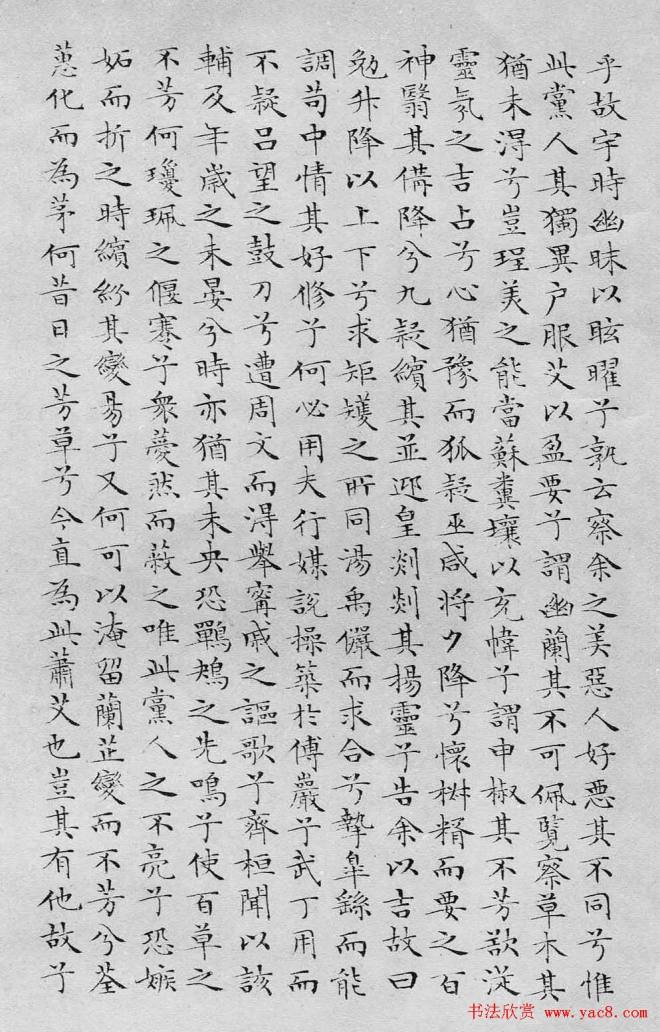 乎故宇時幽昧以眩曜兮孰云察余之美惡人好惡其不同兮惟
此黨人其獨異户服艾以盈要兮謂幽蘭其不可佩覽察草木其
猶未淂兮豈珵美之能當蘇糞壤以充幃兮謂申椒其不芳欲從
靈氛之吉占兮心猶豫而狐疑巫咸将夕降兮懷椒糈而要之百
神翳其俻降兮九疑繽其並迎皇剡剡其揚靈兮告余以吉故曰
勉升降以上下兮求矩矱之所同湯禹儼而求合兮摯皋繇而能
調苟中情其好修兮何必用夫行媒說操築於傅巖兮武丁用而
不疑吕望之鼓刀兮遭周文而淂舉甯戚之謳歌兮齊桓聞以該
輔及年歲之未晏兮時亦猶其未央恐鷤鴂之先鳴兮使百草之
不芳何瓊珮之偃蹇兮衆薆然而蔽之唯此黨人之不亮兮恐嫉
妬而折之時繽紛其變易兮又何可以淹留蘭芷變而不芳兮荃
蕙化而為茅何昔日之芳草兮今直為此蕭艾也豈其有他故兮
书法欣赏 www.yac8.com